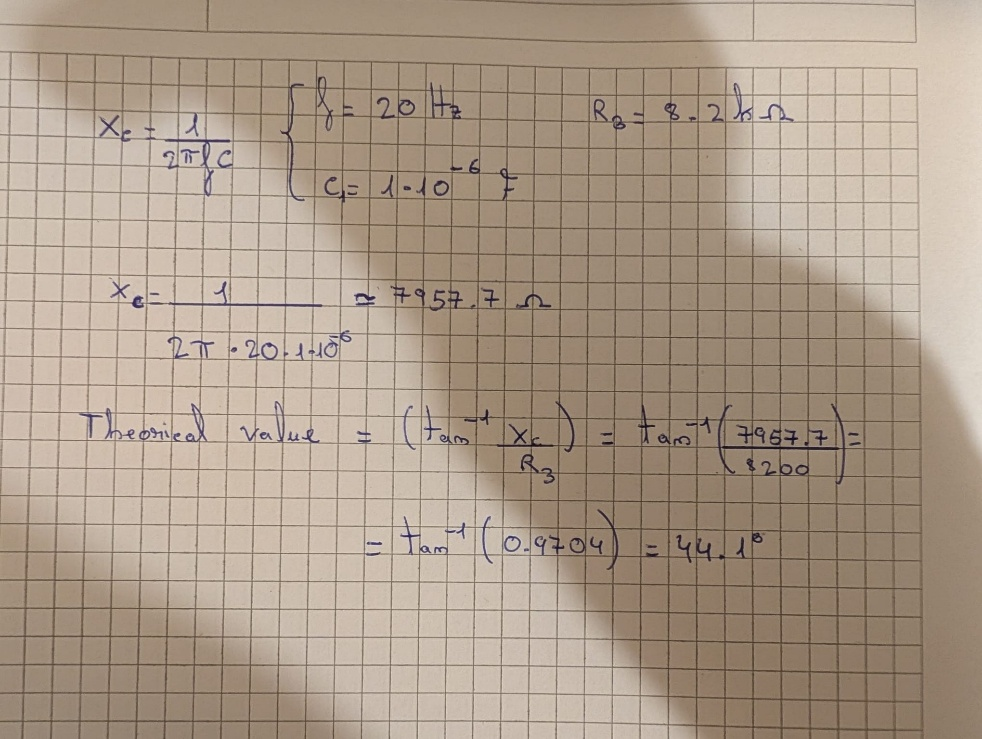 Xc = 1/2πfC { f = 20 Hz R3 = 8.2 kΩ
C1 = 1·10⁻⁶ F
Xc = 1/2π·20·1·10⁻⁶ ≃ 7957.7 Ω
Theorical value = (tan⁻¹ Xc/R3) = tan⁻¹(7957.7/8200) =
= tan⁻¹(0.9704) = 44.1°